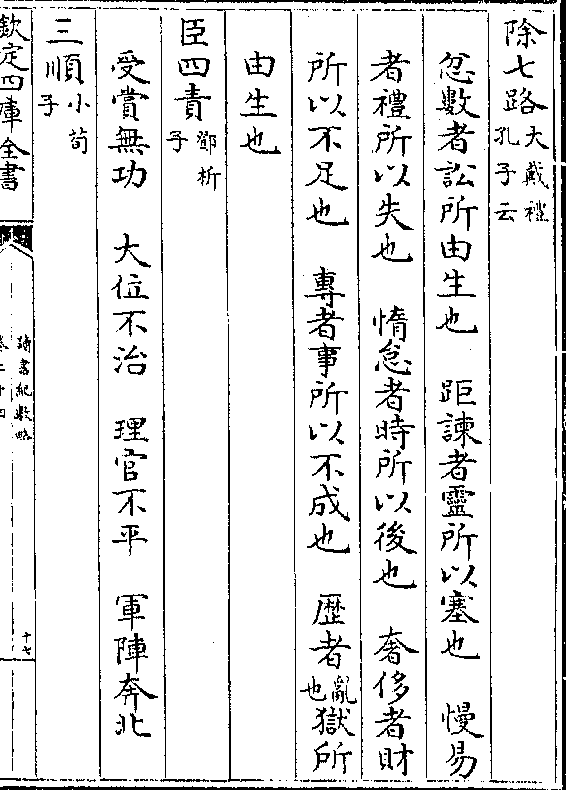 除七路大戴禮孔子云
忿數者訟所由生也　距諫者靈所以塞也　慢易
者禮所以失也　惰怠者時所以後也　奢侈者財
所以不足也　專者事所以不成也　歴者亂也獄所
由生也
臣四責鄧析子
受賞無功　大位不治　理官不平　軍陣奔北
三順小荀子
欽定四庫全書
讀書紀數略
卷二十四
十七